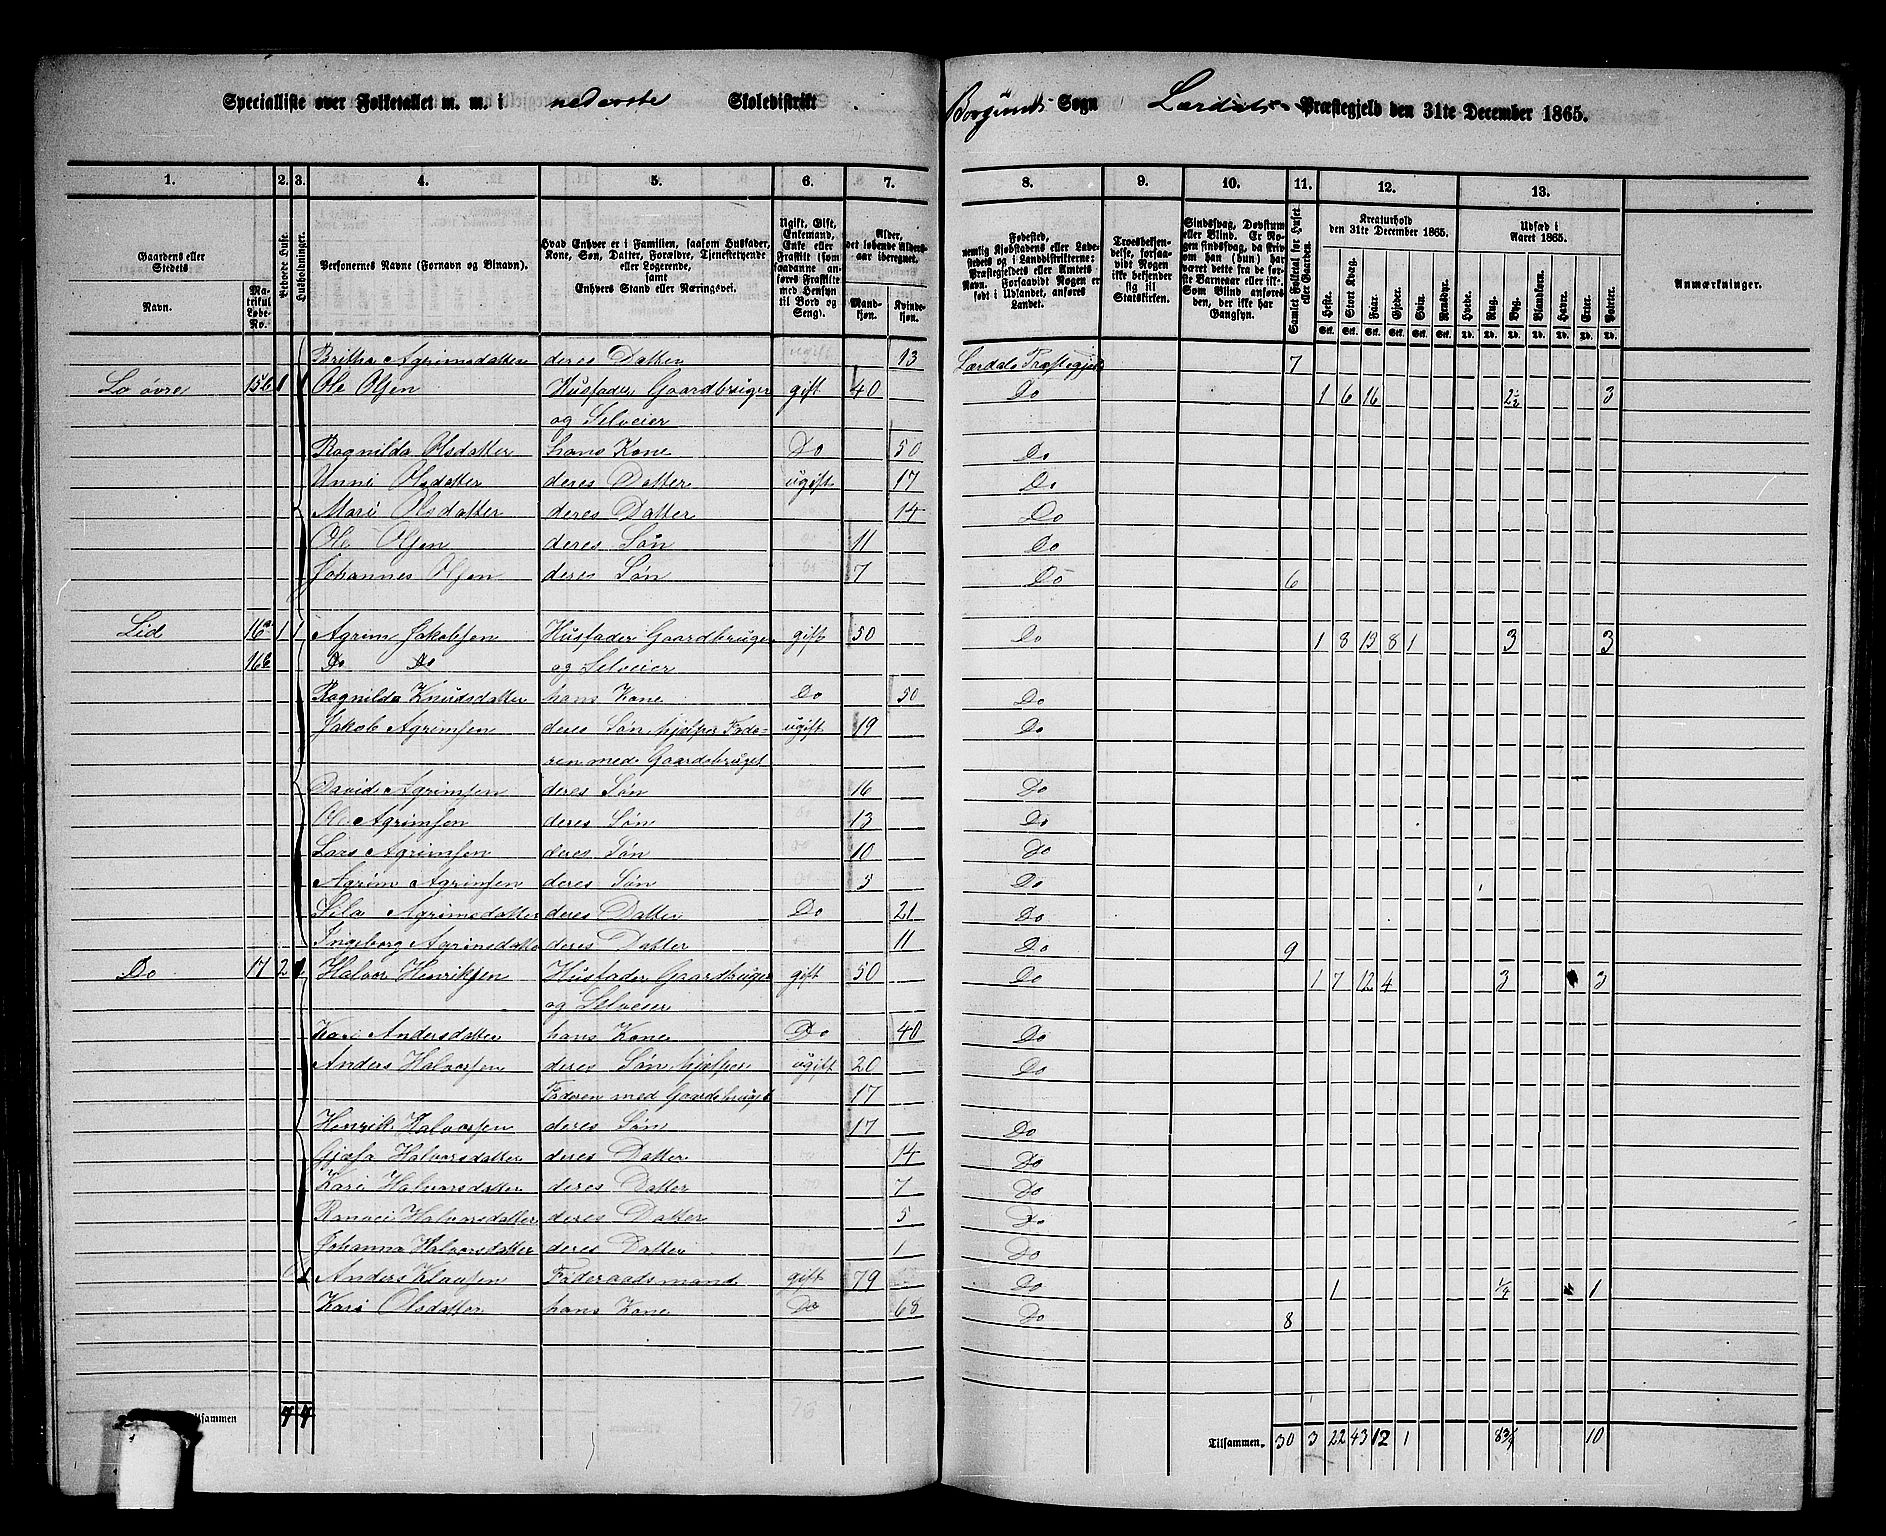 Specialliste over Folketallet m. m. i nederste Skoledistrikt Borgunds Sogn Lærdals Præstegjeld den 31te December 1865.
1. 2. 3. 4. 5. 6. 7. 8. 9. 10. 11. 12. 13.
Gaardens eller Stedets Navn. Matrikul Løbe-No. Beboede Huse. Husholdninger. Personernes Navne (Fornavn og Tilnavn). Hvad Enhver er i Familien, saasom Husfader, Kone, Søn, Datter, Forældre, Tjenestetyende eller Logerende, samt Enhvers Stand eller Næringsvei. Ugift, Gift, Enkemand, Enke eller Fraskilt (som saadanne anføres Fraskilte med Hensyn til Bord og Seng). Alder, det løbende Aldersaar iberegnet. Mandkjøn. Kvindekjøn. Fødested, nemlig Kjøbstadens eller Ladestedets og i Landdistrikterne: Præstegjeldets eller Amtets Navn. Forsaavidt Nogen er født i Udlandet, anføres Landet. Troesbekjendelse, forsaavidt Nogen ikke bekjender sig til Statskirken. Sindssvag, Døvstum eller Blind. Er Nogen sindssvag, da skrives om han (hun) har været dette fra de første Barneaar eller ikke. Som Blind anføres den, der ikke har Gangsyn. Samlet Folketal for Huset eller Gaarden. Kreaturhold den 31te December 1865. Udsæd i Aaret 1865. Anmærkninger.
Heste. Stort Kvæg. Faar. Gjeder. Svin. Rensdyr. Hvede. Rug. Byg. Blandkorn. Havre. Erter. Poteter.
Britha Agrimsdatter deres Datter ugift 13 Lærdals Præstegjeld 7
Lo øvre 15b 1 1 Ole Olsen Husfader Gaardbruger gift 40 Do 1 6 16 2½ 3
og Selveier
Ragnilda Olsdatter hans Kone Do 50 Do
Unni Olsdatter deres Datter ugift 17 Do
Mari Olsdatter deres Datter 14 Do
Ole Olsen deres Søn 11 Do
Johannes Olsen deres Søn 7 Do 6
Lid 16a 1 1 Agrim Jakobsen Husfader Gaardbruger gift 50 Do 1 8 13 8 1 3 3
16b Do Do og Selveier
Ragnilda Knudsdatter hans Kone Do 50 Do
Jakob Agrimsen deres Søn hjelper Fade- ugift 19 Do
ren med Gaardsbruget
David Agrimsen deres Søn 16 Do
Ole Agrimsen deres Søn 13 Do
Lars Agrimsen deres Søn 10 Do
Agrim Agrimsen deres Søn 5 Do
Sila Agrimsdatter deres Datter Do 21 Do
Ingeborg Agrimsdatter deres Datter 11 Do 9
Do 17 2 1 Halvor Henriksen Husfader Gaardbruger gift 50 Do 1 7 12 4 3 3
og Selveier
Kari Andersdatter hans Kone Do 40 Do
Anders Halvorsen deres Søn hjelper ugift 20 Do
Faderen med Gaardsbruget 17
Henrik Halvorsen deres Søn 17 Do
Halvorsdatter deres Datter 14 Do
Kari Halvorsdatter deres Datter 7 Do
Ranvei Halvorsdatter deres Datter 5 Do
Johanna Halvorsdatter deres Datter 1 Do
1 Anders Klausen Føderaadsmand gift 79 Do 1 ¼ 1
Kari Olsdatter hans Kone Do 68 Do 8
Tilsammen 4 4 Tilsammen. 30 3 22 43 12 1 8¾ 10